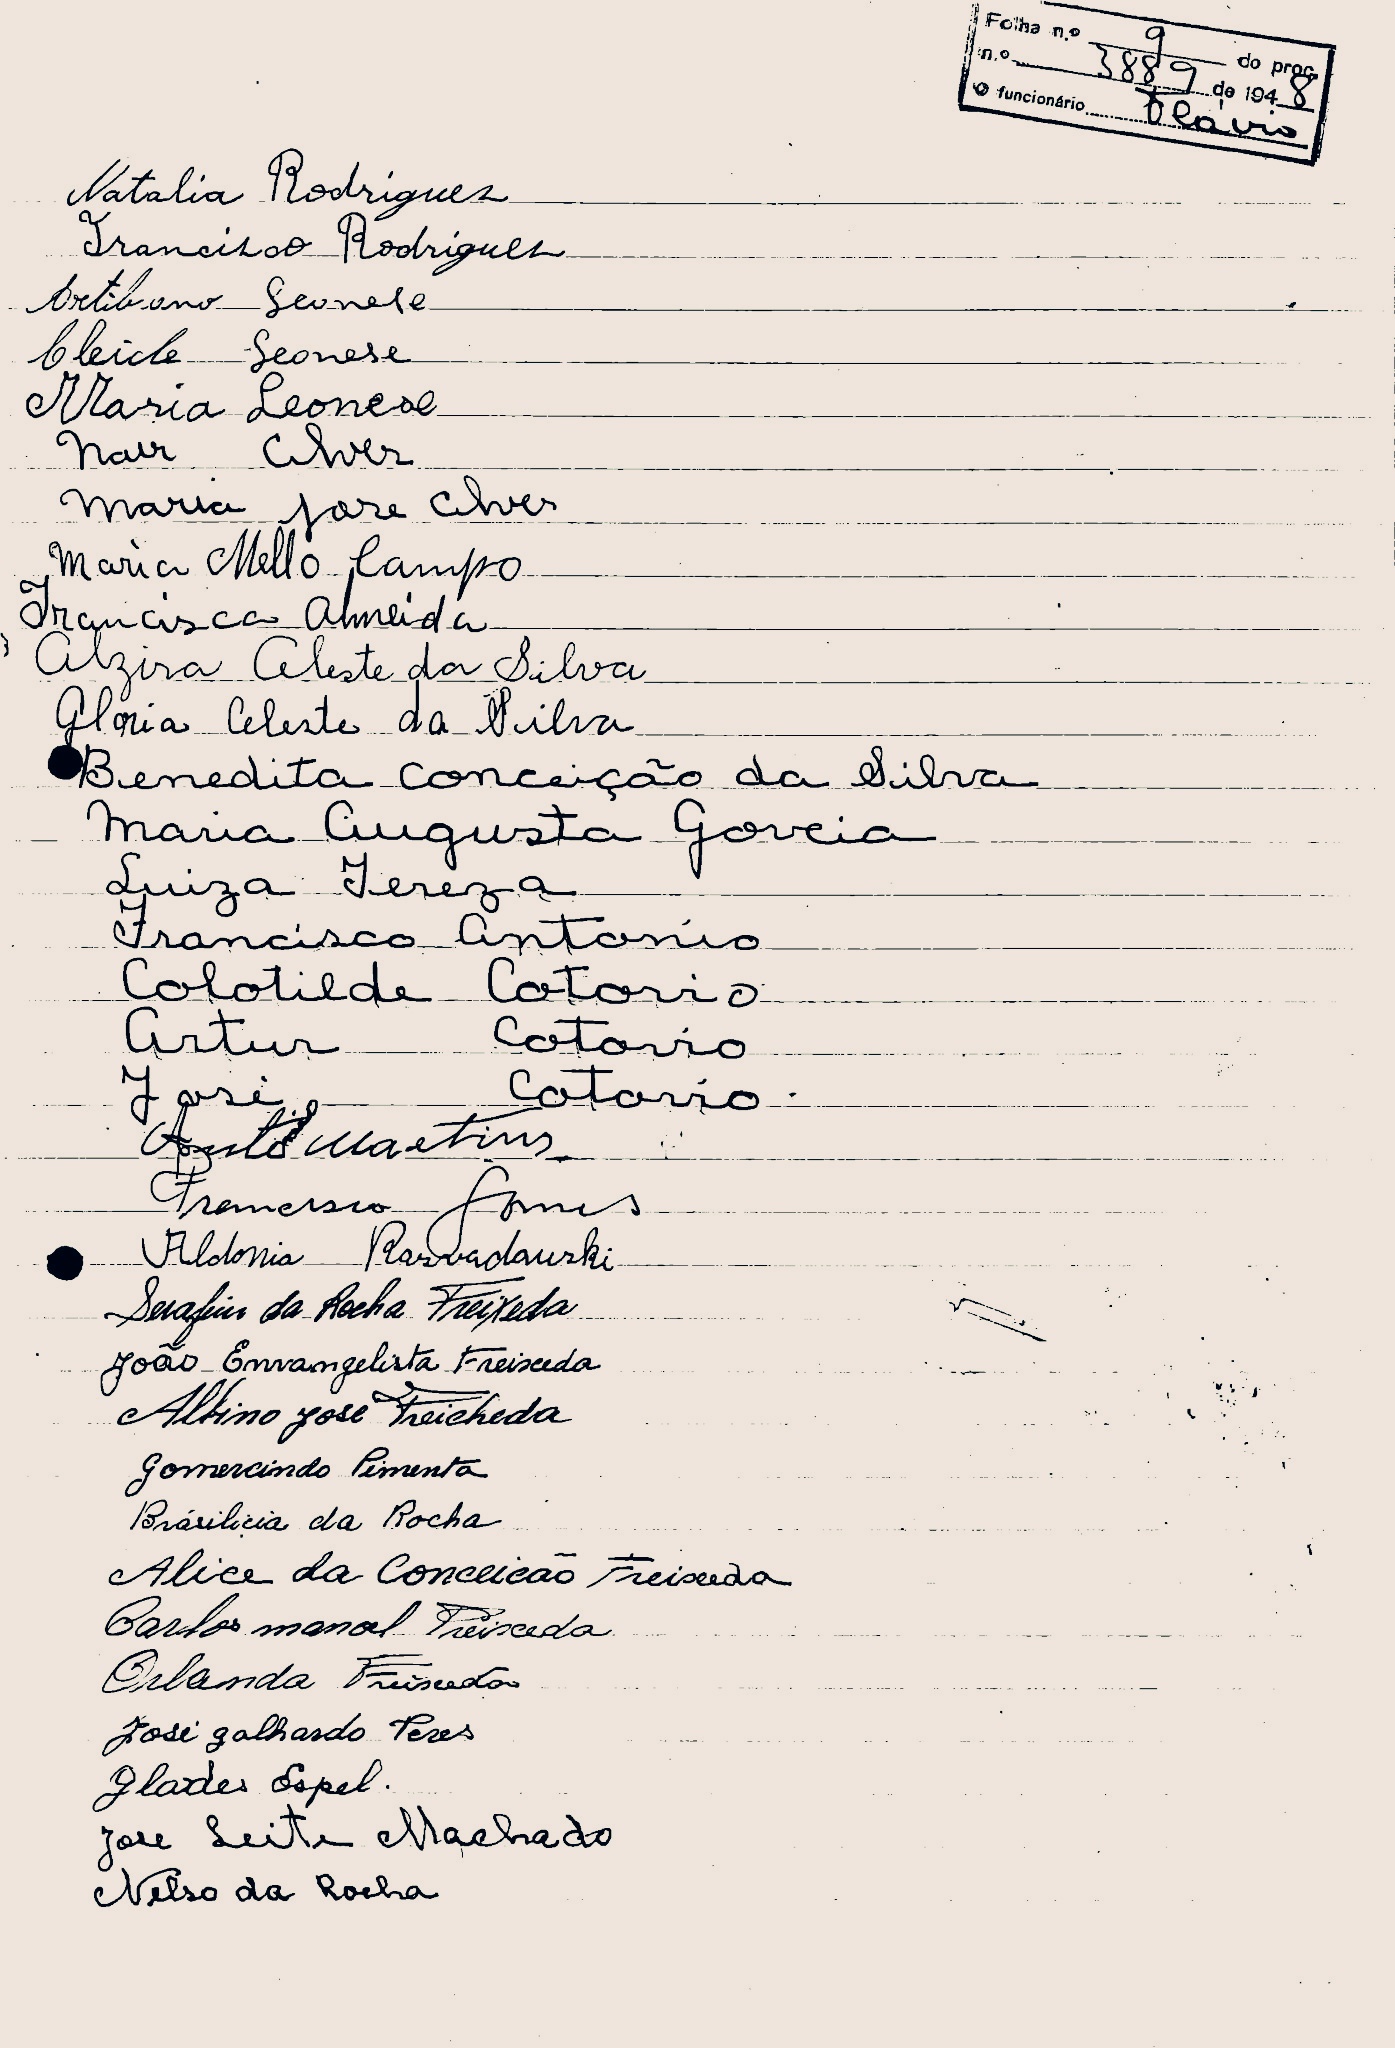 Folha n.º 9 do proc.
n.º 3889 de 1948
O funcionário Flávio
Natalia Rodrigues
Francisco Rodrigues
Artibano Leonese
Cleide Leonese
Maria Leonese
Nair Alves
Maria Jose Alves
Maria Mello Campo
Francisca Almeida
Alzira Celeste da Silva
Gloria Celeste da Silva
Benedita Conceição da Silva
Maria Augusta Gorcia
Luiza Tereza
Francisco Antonio
Colotilde Cotovio
Artur Cotovio
José Cotovio.
Martins
Francisco Gomes
Aldonia
Serafim da Rocha Freixeda
João Envangelista Freixeda
Albino José Freicheda
Gomercindo Pimenta
Brásilicia da Rocha
Alice da Conceicão Freixeda
Carlos manoel Freixeda
Orlanda Freixeda
José galhardo Peres
Glades Espel.
Jose Leite Machado
Nelso da Rocha